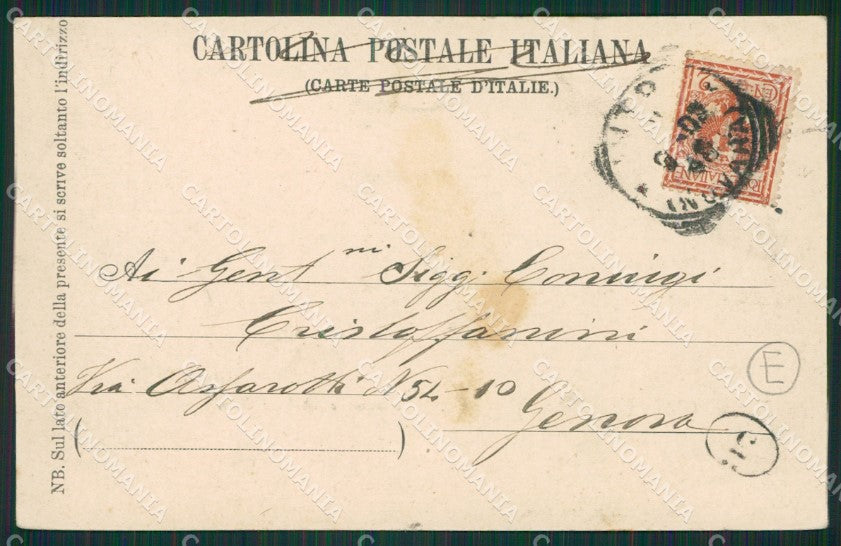 CARTOLINA POSTALE ITALIANA
(CARTE POSTALE D'ITALIE.)
NB. Sul lato anteriore della presente si scrive soltanto l'indirizzo
Ai Gent.mi Sigg: Coniugi
Cristoffanini
Via Assarotti N 52-10
Genova
E
CARTOLINOMANIA